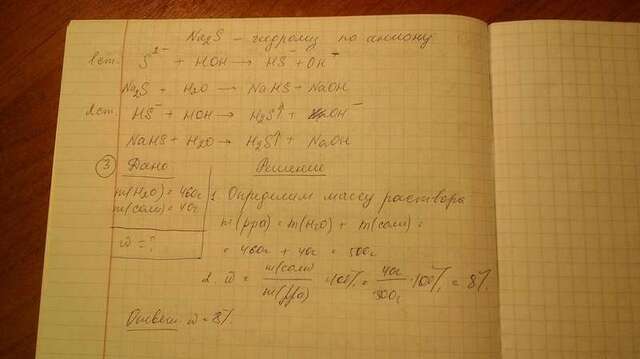 Na₂S – гидролиз по аниону
I ст. S²⁻ + HOH → HS⁻ + OH⁻
Na₂S + H₂O → NaHS + NaOH
II ст. HS⁻ + HOH → H₂S↑ + OH⁻
NaHS + H₂O → H₂S↑ + NaOH
③ Дано Решение
m(H₂O) = 460г 1. Определим массу раствора
m(соли) = 40г m(рра) = m(H₂O) + m(соли) =
ω = ? = 460г + 40г = 500г
2. ω = m(соли)/m(рра) · 100% = 40г/500г · 100% = 8%
Ответ ω = 8%